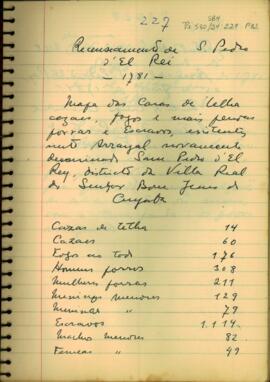 227
SBH
Pi 540/34 227 P32
Recenseamento de S. Pedro
d'El Rei
— 1781 —
Mapa das Casas de telha
cazaes, fogos e mais pessoas
forras e Escravos, existentes
neste Arrayal novamente
denominado Sam Pedro d'El
Rey, districto da Villa Real
do Senhor Bom Jesus de
Cuyabá
Cazas de telha 14
Cazaes 60
Fogos no todo 176
Homens forros 308
Mulheres forras 211
Meninos menores 129
Meninas " 79
Escravos 1.114
Machos menores 82
Femeas " 49